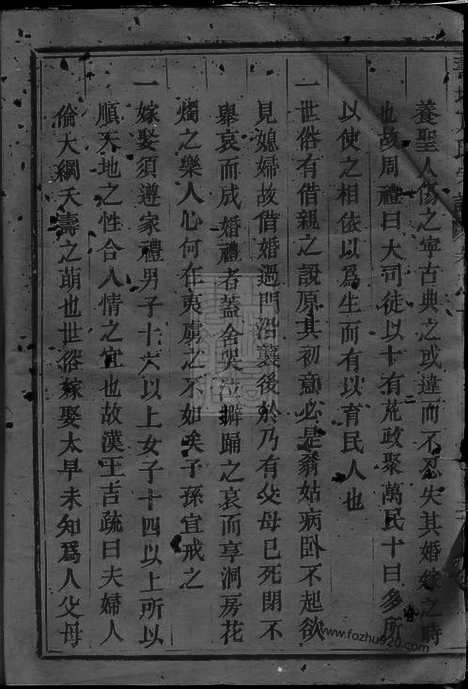 養聖人傷之寧古典之或違而不忍失其婚嫁之時
也故周禮曰大司徒以十有二荒政聚萬民十曰多所
以使之相依以爲生而有以育民人也
一世俗有借親之說原其初意必是翁姑病卧不起欲
見媳婦故借婚過門沿襲後於乃有父母已死閉不
舉哀而成婚禮者蓋舍哭泣擗踊之哀而享洞房花
燭之樂人心何在夷虜之不如矣子孫宜戒之
一嫁娶須遵家禮男子十六以上女子十四以上所以
順天地之性合人情之宜也故漢王吉疏曰夫婦人
倫大綱夭壽之萌也世俗嫁娶太早未知爲人父母
www.fozhu920.com